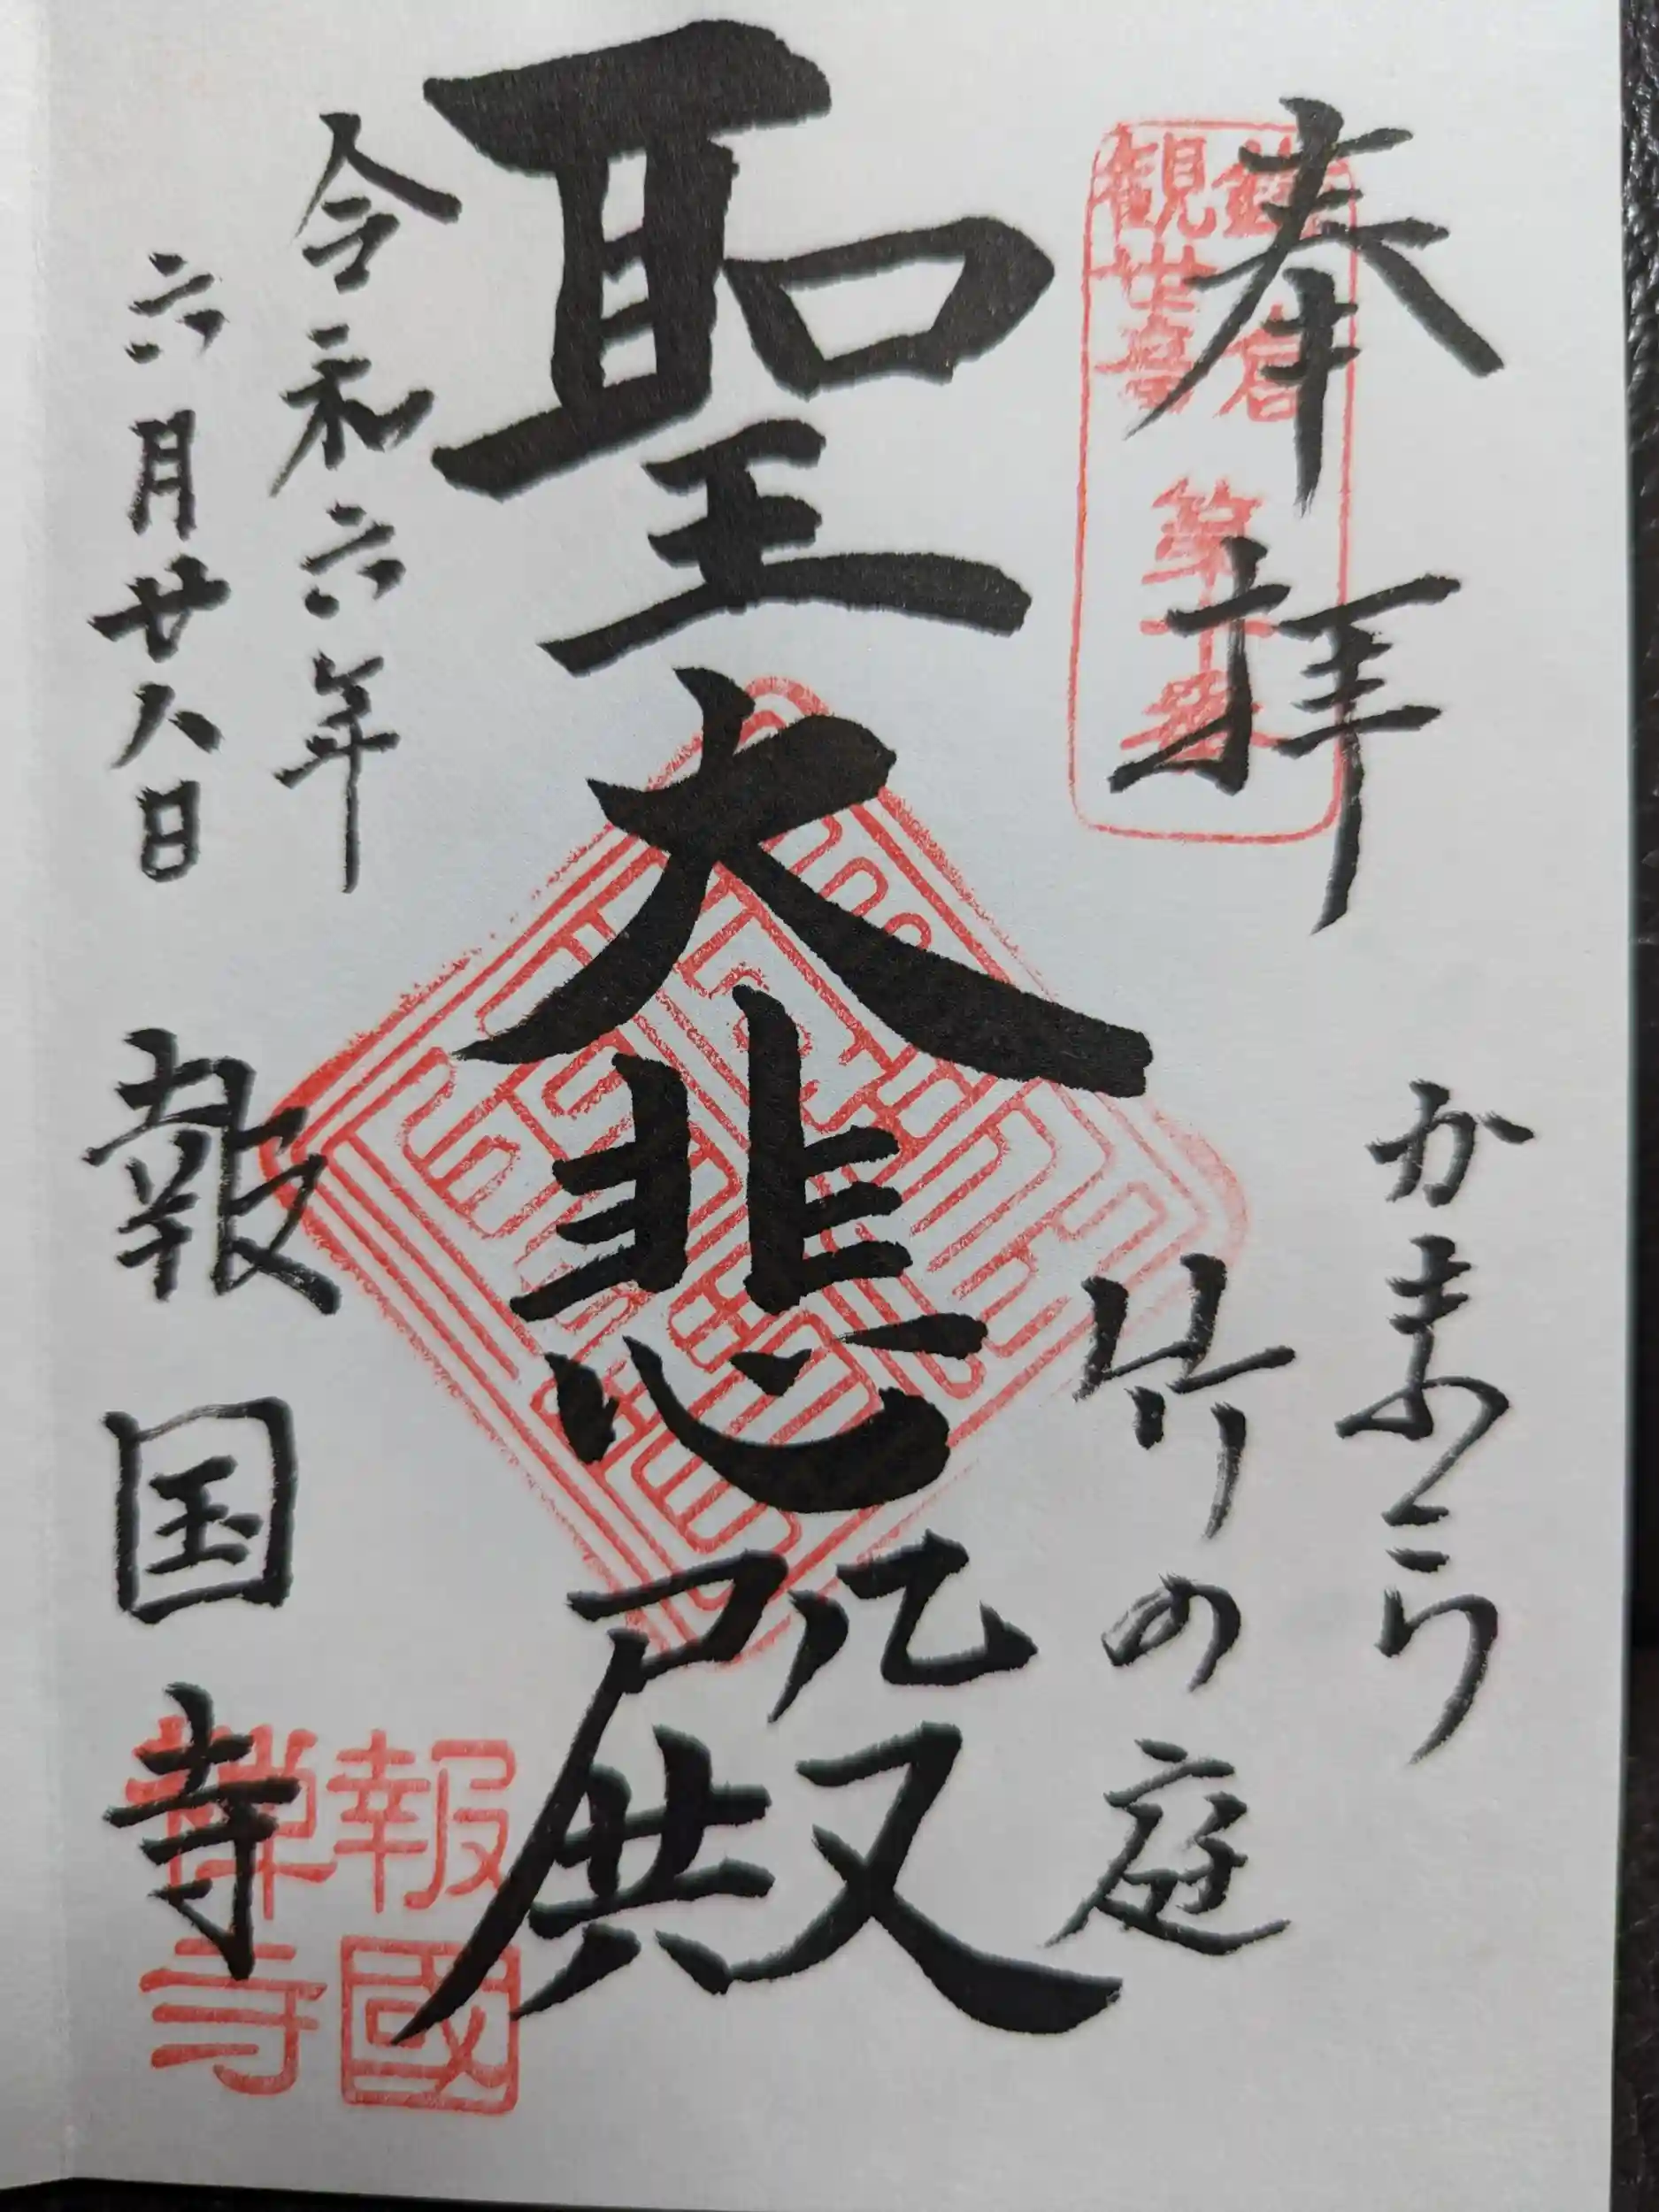 奉拝
かまくら
竹の庭
鎌倉
観世音
第十番
聖大悲殿
令和六年
六月廿八日
報国寺
報國
禅寺